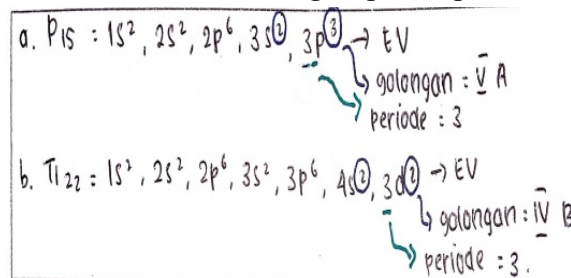 a. P15 : 1s², 2s², 2p⁶, 3s², 3p³ → EV
golongan : V A
periode : 3
b. Ti 22 = 1s², 2s², 2p⁶, 3s², 3p⁶, 4s², 3d² → EV
golongan : IV B
periode : 3.